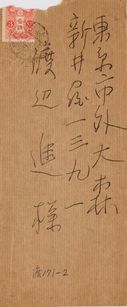 東京市外大森
新井宿一三九一
渡辺進様
渡171-2